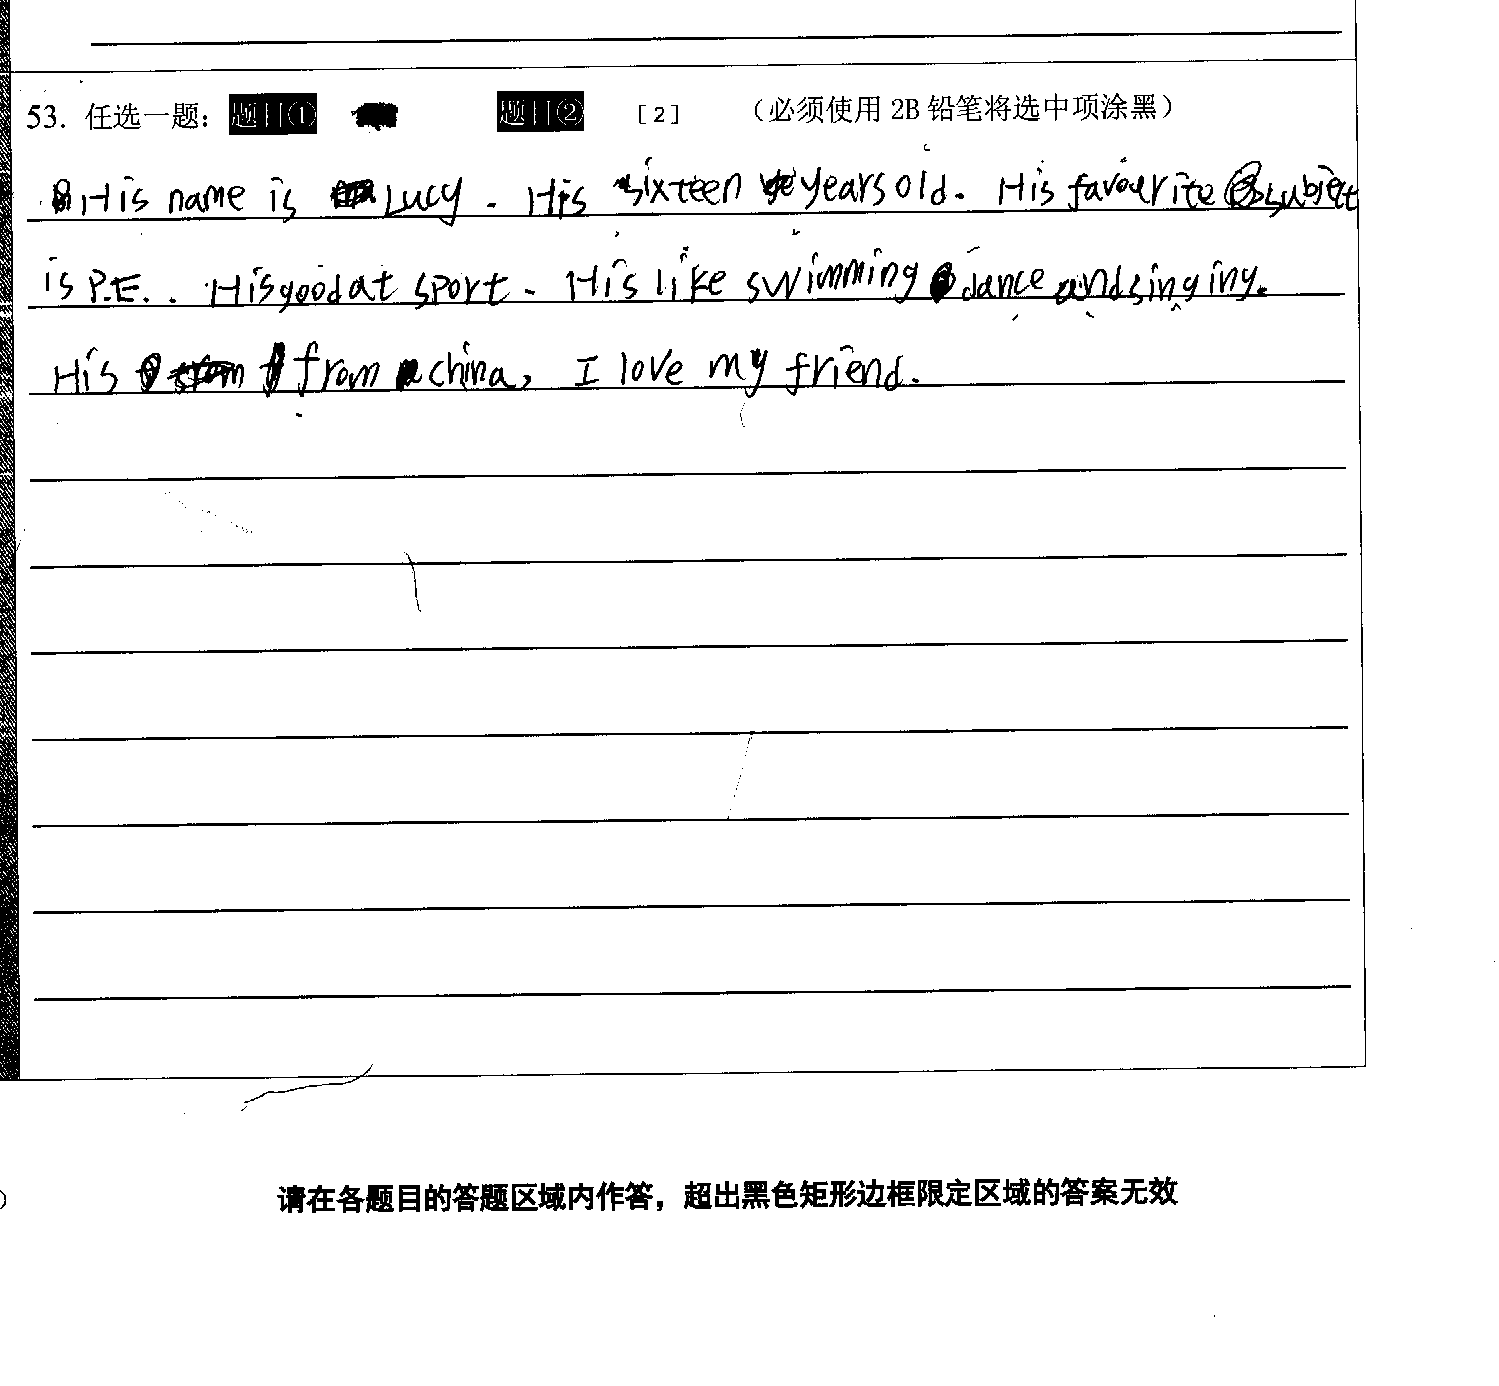 53. 任选一题： 题目① 题目② [2] （必须使用 2B 铅笔将选中项涂黑）
His name is Lucy. His sixteen years old. His favourite subject
is P.E.. His good at sport. His like swimming dance and singing.
His from china, I love my friend.
请在各题目的答题区域内作答，超出黑色矩形边框限定区域的答案无效